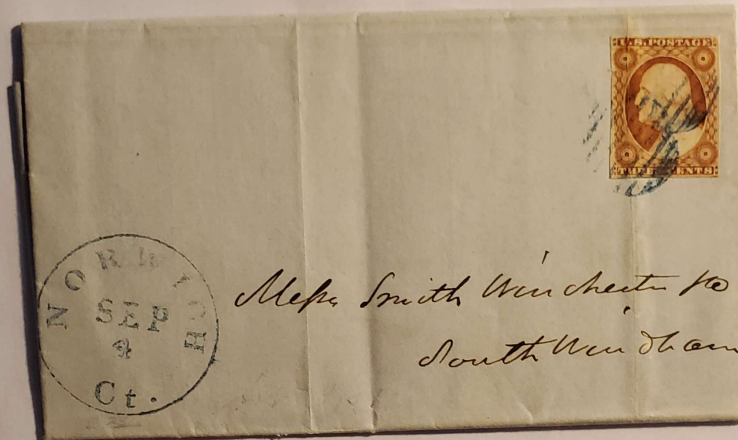 U.S. POSTAGE
THREE CENTS
NORWICH
SEP
Ct.
Messrs Smith Winchester &co
South Windham